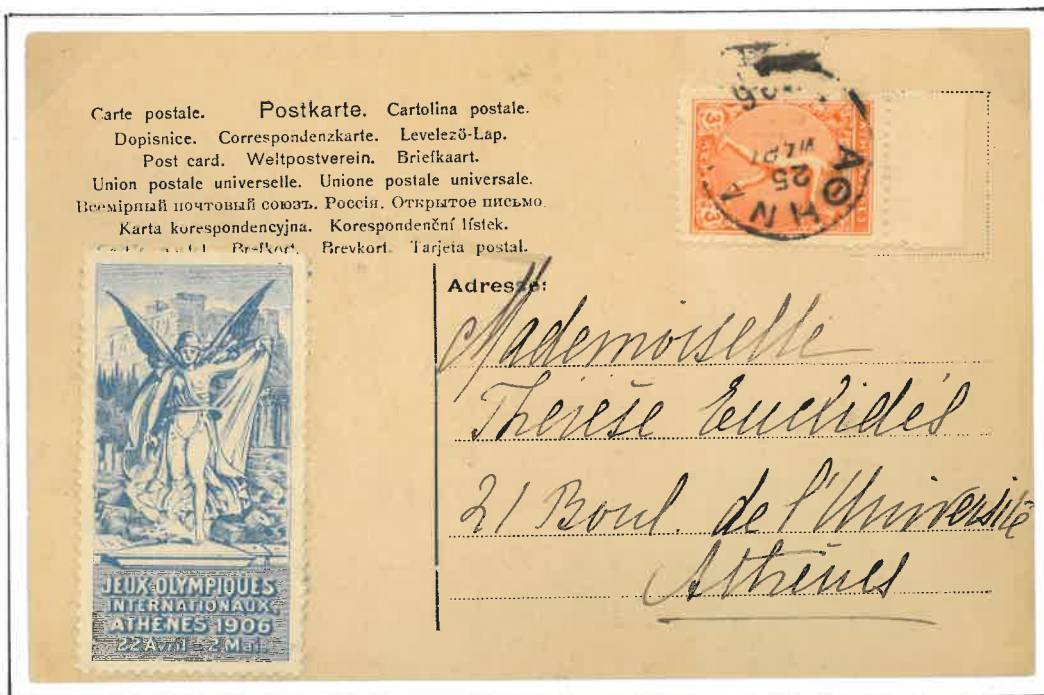 Carte postale. Postkarte. Cartolina postale.
Dopisnice. Correspondenzkarte. Levelező-Lap.
Post card. Weltpostverein. Briefkaart.
Union postale universelle. Unione postale universale.
Всемірный почтовый союзъ. Россія. Открытое письмо.
Karta korespondencyjna. Korespondenční lístek.
Brefkort. Brevkort. Tarjeta postal.
3
3
25
ΑΘΗΝΑ
Adresse:
Mademoiselle
Thérèse Euclidés
21 Boul. de l'Université
Athènes
JEUX OLYMPIQUES
INTERNATIONAUX
ATHENES 1906
22 Avril - 2 Mai